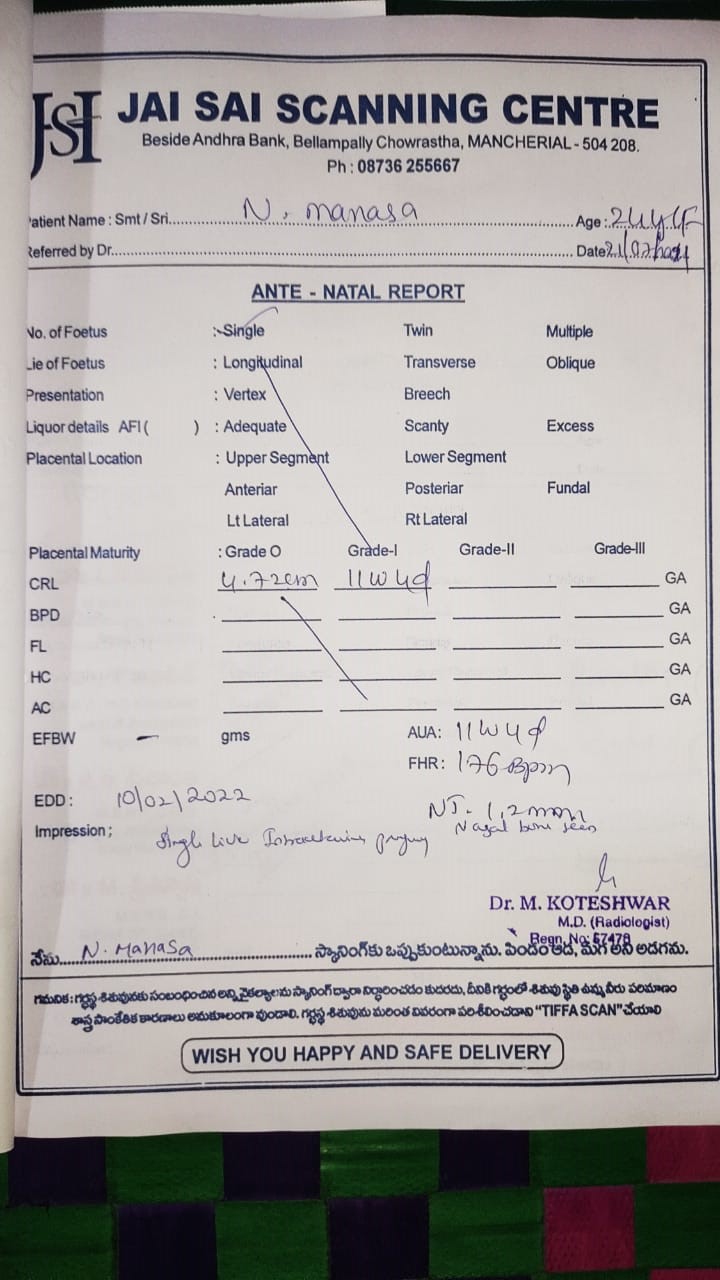 JSI JAI SAI SCANNING CENTRE
Beside Andhra Bank, Bellampally Chowrastha, MANCHERIAL - 504 208.
Ph : 08736 255667
atient Name : Smt / Sri. N. manasa Age : 24y/F
Referred by Dr. Date 21/07/2021
ANTE - NATAL REPORT
No. of Foetus :- Single Twin Multiple
Lie of Foetus : Longitudinal Transverse Oblique
Presentation : Vertex Breech
Liquor details AFI ( ) : Adequate Scanty Excess
Placental Location : Upper Segment Lower Segment
Anteriar Posteriar Fundal
Lt Lateral Rt Lateral
Placental Maturity : Grade O Grade-I Grade-II Grade-III
CRL 4.72cm 11W4d GA
BPD GA
FL GA
HC GA
AC GA
EFBW - gms AUA: 11W4d
FHR: 176 Bpm
EDD : 10/02/2022
NT- 1.2mm
Impression ; Single live Intrauterine Nazal bone seen
Dr. M. KOTESHWAR
M.D. (Radiologist)
Regn. No: 57478
నేను N. Manasa స్కానింగ్‌కు ఒప్పుకుంటున్నాను. పిండం ఆడ, మగ అని అడగను.
గమనిక : గర్భస్థ శిశువునకు సంబంధించిన అన్ని వైకల్యాలను స్కానింగ్ ద్వారా నిర్ధారించడం కుదరదు, దీనికి గర్భంలో శిశువు స్థితి ఉమ్మ నీరు పరిమాణం
శాస్త్ర సాంకేతిక కారణాలు అనుకూలంగా వుండాలి. గర్భస్థ శిశువును మరింత వివరంగా పరిశీలించడాని "TIFFA SCAN" చేయాలి
WISH YOU HAPPY AND SAFE DELIVERY